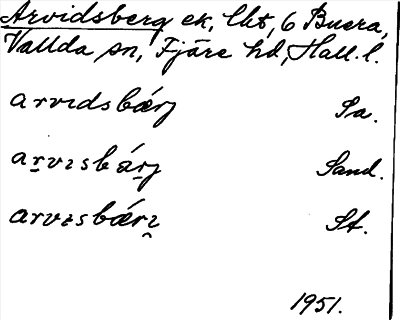 Arvidsberg ek, lht, 6 Buera,
Vallda sn, Fjäre hd, Hall. l.
arvidsbærj Sa.
arvisbárj Sand.
arvisbærj St.
1951.